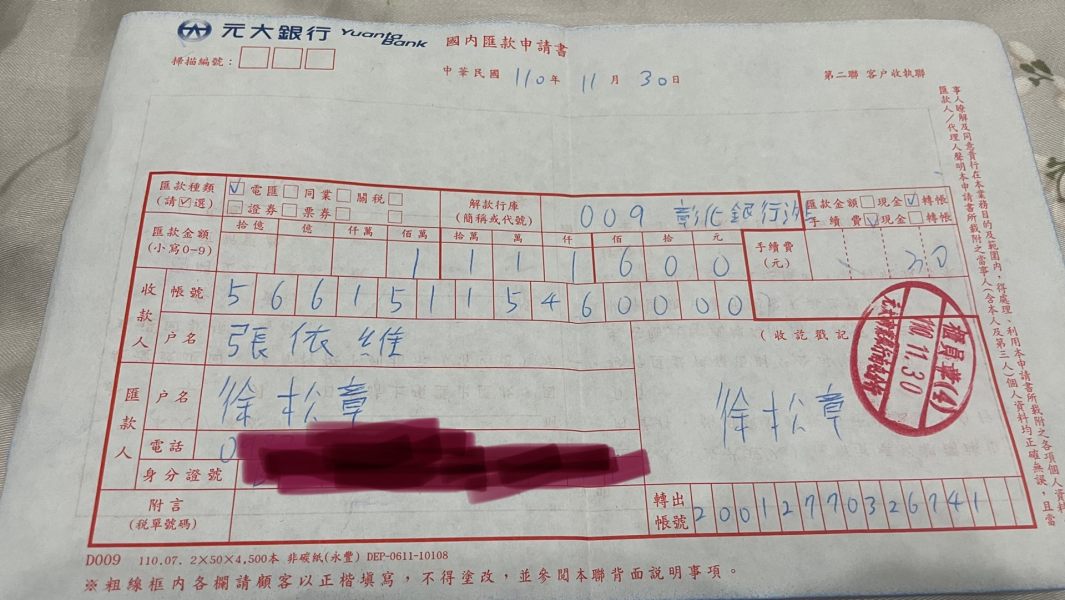 元大銀行 Yuanta Bank 國內匯款申請書
掃描編號：
中華民國 110年 11月 30日
第二聯 客戶收執聯
匯款種類 (請☑選) ☑電匯 □同業 □關稅 □
□證券 □票券 □ □
解款行庫 (簡稱或代號) 009 彰化銀行
匯款金額 □現金 ☑轉帳
手續費 ☑現金 □轉帳
匯款金額 (小寫0-9) 拾億 億 仟萬 佰萬 拾萬 萬 仟 佰 拾 元
1 1 1 1 6 0 0
手續費 (元) 30
收款人 帳號 56615115460000
戶名 張依維
(收訖戳記)
櫃員章(4)
110.11.30
匯款人 戶名 徐松章
徐松章
電話 0
身分證號
附言 (稅單號碼)
轉出帳號 20012770326741
D009 110.07. 2×50×4,500本 非碳紙(永豐) DEP-0611-10108
※粗線框內各欄請顧客以正楷填寫，不得塗改，並參閱本聯背面說明事項。
匯款人／代理人聲明本申請書所載附之當事人(含本人及第三人)個人資料均正確無誤，且當
事人瞭解及同意貴行在本業務目的及範圍內，得處理、利用本申請書所載附之各項個人資料